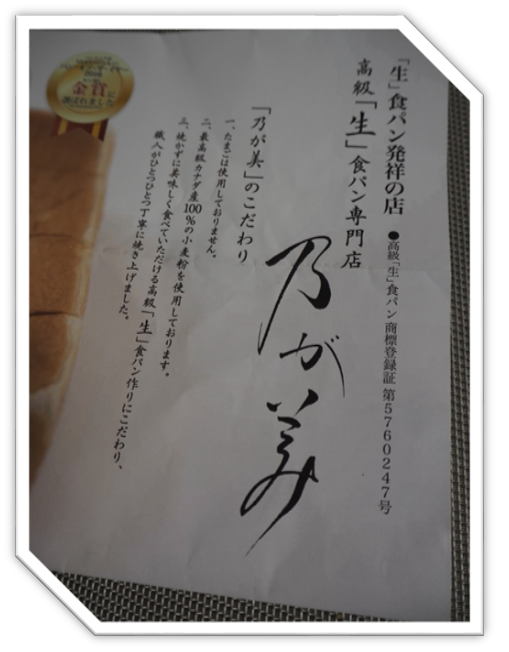 「生」食パン発祥の店
●高級「生」食パン 商標登録証 第5760247号
高級「生」食パン専門店
乃が美
「乃が美」のこだわり
一、たまごは使用しておりません。
二、最高級カナダ産100％の小麦粉を使用しております。
三、焼かずに美味しく食べていただける高級「生」食パン作りにこだわり、
職人がひとつひとつ丁寧に焼き上げました。
2016
金賞に
選ばれました